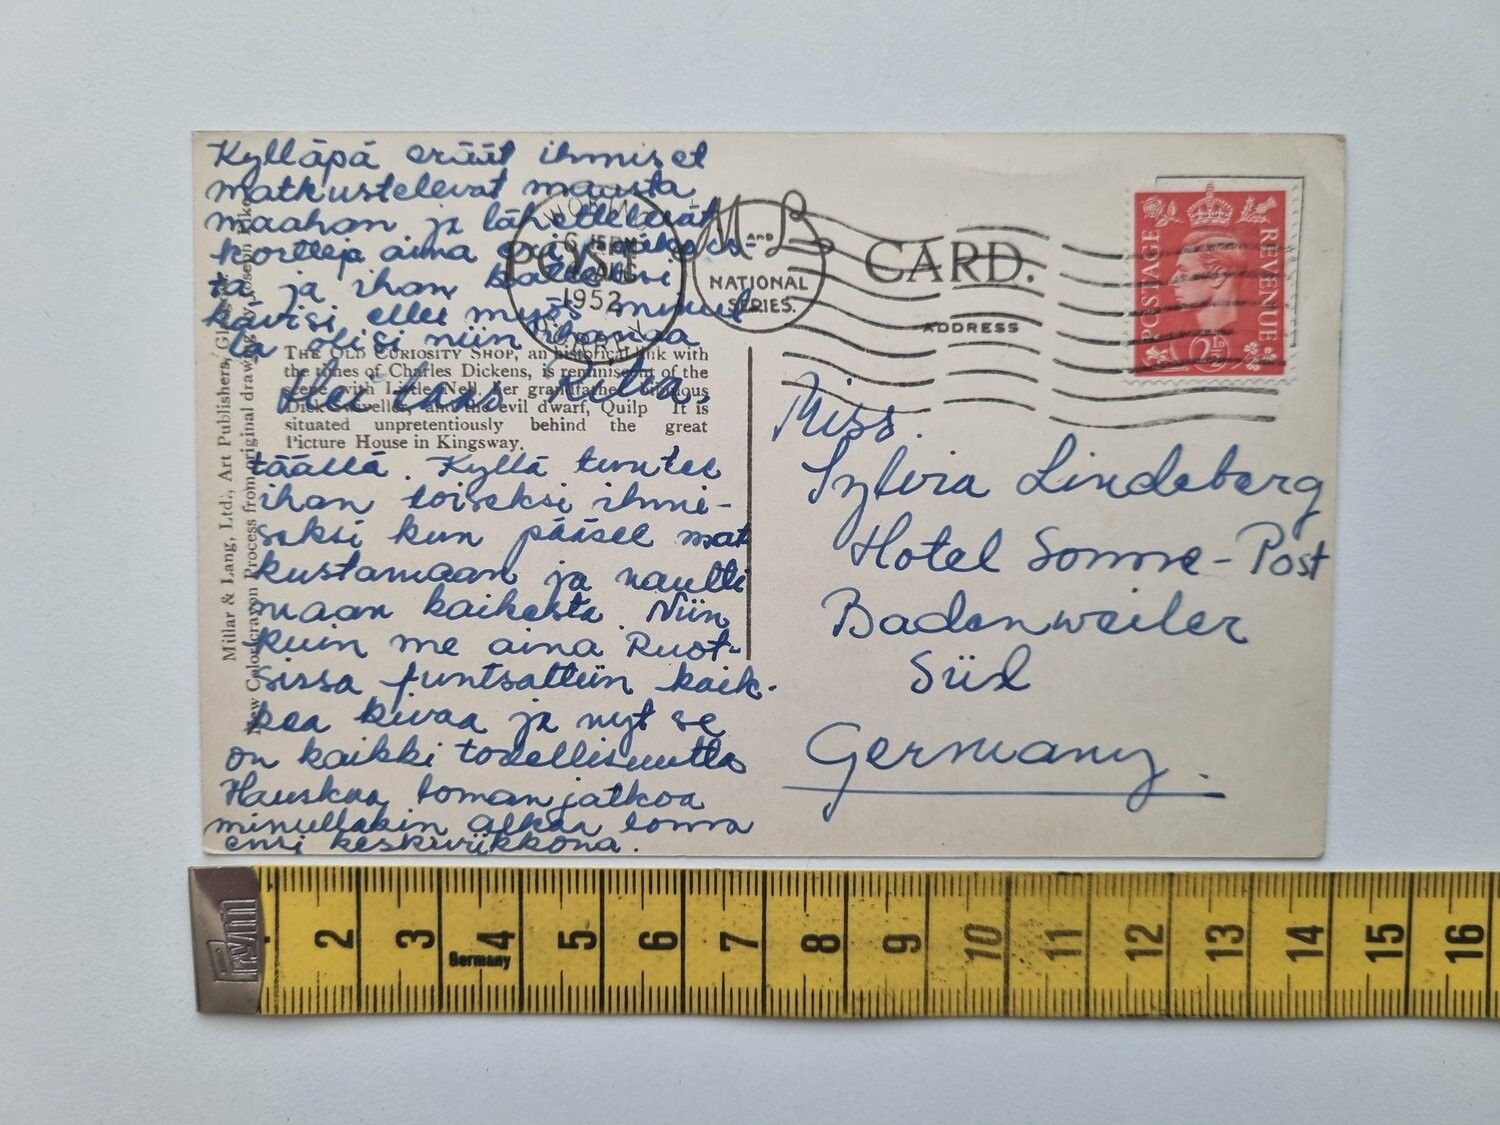 Kylläpä eräät ihmiset
matkustelevat maasta
maahan ja lähettelevät
kortteja aina
ta ja ihan
kävisi ellei myös minul
la olisi niin ihanaa
täällä. Kyllä tuntee
ihan toiseksi ihmi-
seksi kun pääsee mat
kustamaan ja nautti
maan kaikesta. Niin
kuin me aina Ruot-
sissa funtsattiin kaik-
kea kivaa ja nyt se
on kaikki todellisuutta
Hauskaa loman jatkoa
minullakin alkaa loma
ensi keskiviikkona.
Hei taas Rilva,
THE OLD CURIOSITY SHOP, an historical link with
the times of Charles Dickens, is reminiscent of the
scene with Little Nell, her grandfather, bibulous
Dick Swiveller, and the evil dwarf, Quilp It is
situated unpretentiously behind the great
Picture House in Kingsway.
Millar & Lang, Ltd., Art Publishers,
New Colourcrayon Process from original drawing by Joseph Pike
POST CARD.
M AND L
NATIONAL
SERIES.
WOKING
6 15 PM
1952
SURREY
ADDRESS
POSTAGE
REVENUE
2½D
Miss.
Sylvia Lindeberg
Hotel Sonne-Post
Badenweiler
Süd
Germany.
Prym
2 3 4 5 6 7 8 9 10 11 12 13 14 15 16
Germany